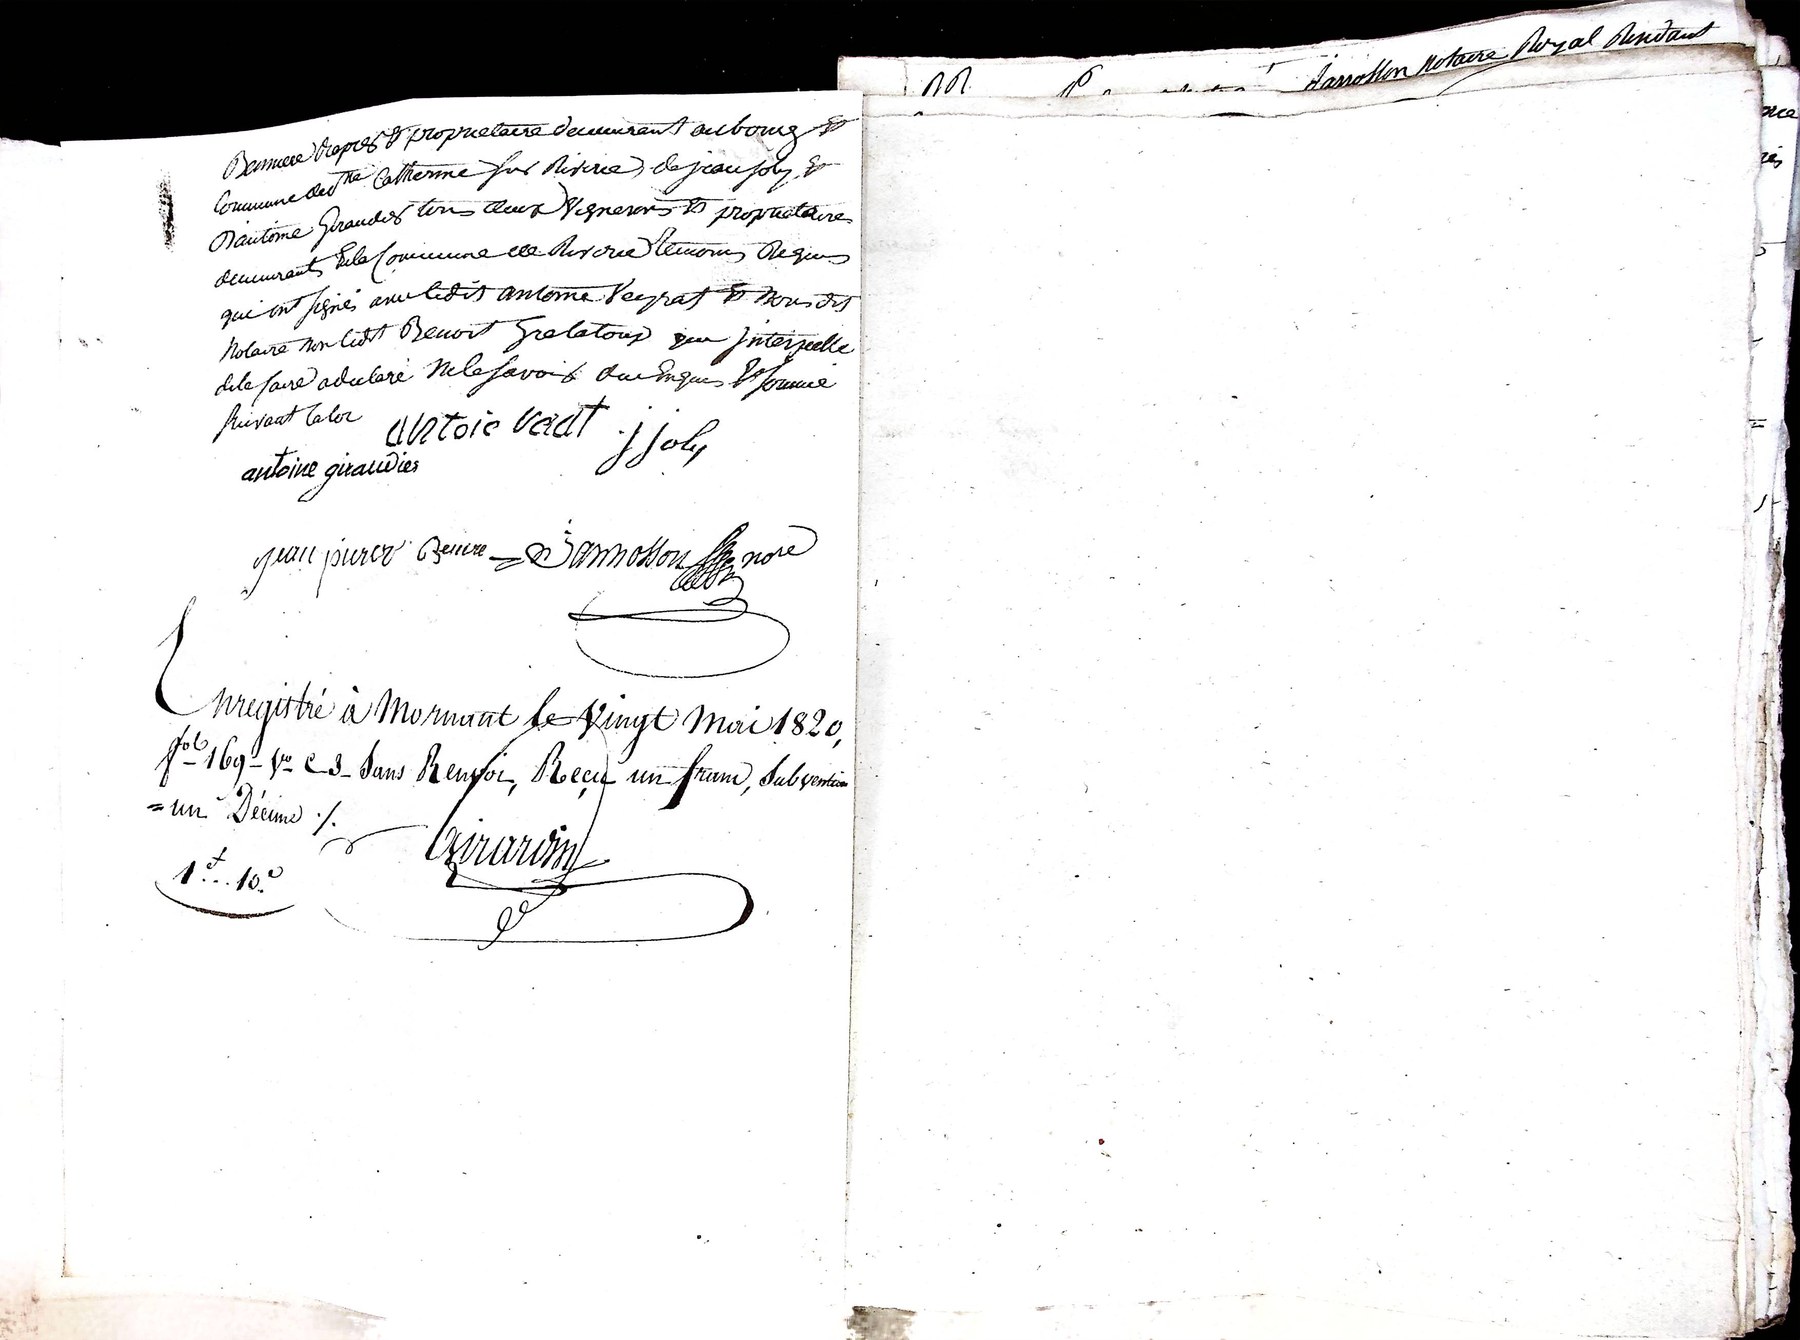 demeurant au bourg &
Commune de Ste Catherine sur Riverie, de jean joly, &
D'antoine Giraudier tous deux Vignerons & proprietaires
demeurants En la Commune de Riverie temoins Requis
qui ont signés avec ledit antoine Veyrat & Nous dit
Notaire non ledit Benoit Grelatoux qui Interpellé
de le faire a declaré Ne le savoir & ce Enquis & sommé
suivant la loi
antoie verat j joly
antoine giraudier
jean pierre Jannosson nore
Enregistré à Mornant le Vingt Mai 1820,
fol 169 Vo C 3 Sans Renvoi, Reçu un franc, Subvention
= un Décime ./.
Girardin
1f.. 10c
Jannosson Notaire Royal Residant